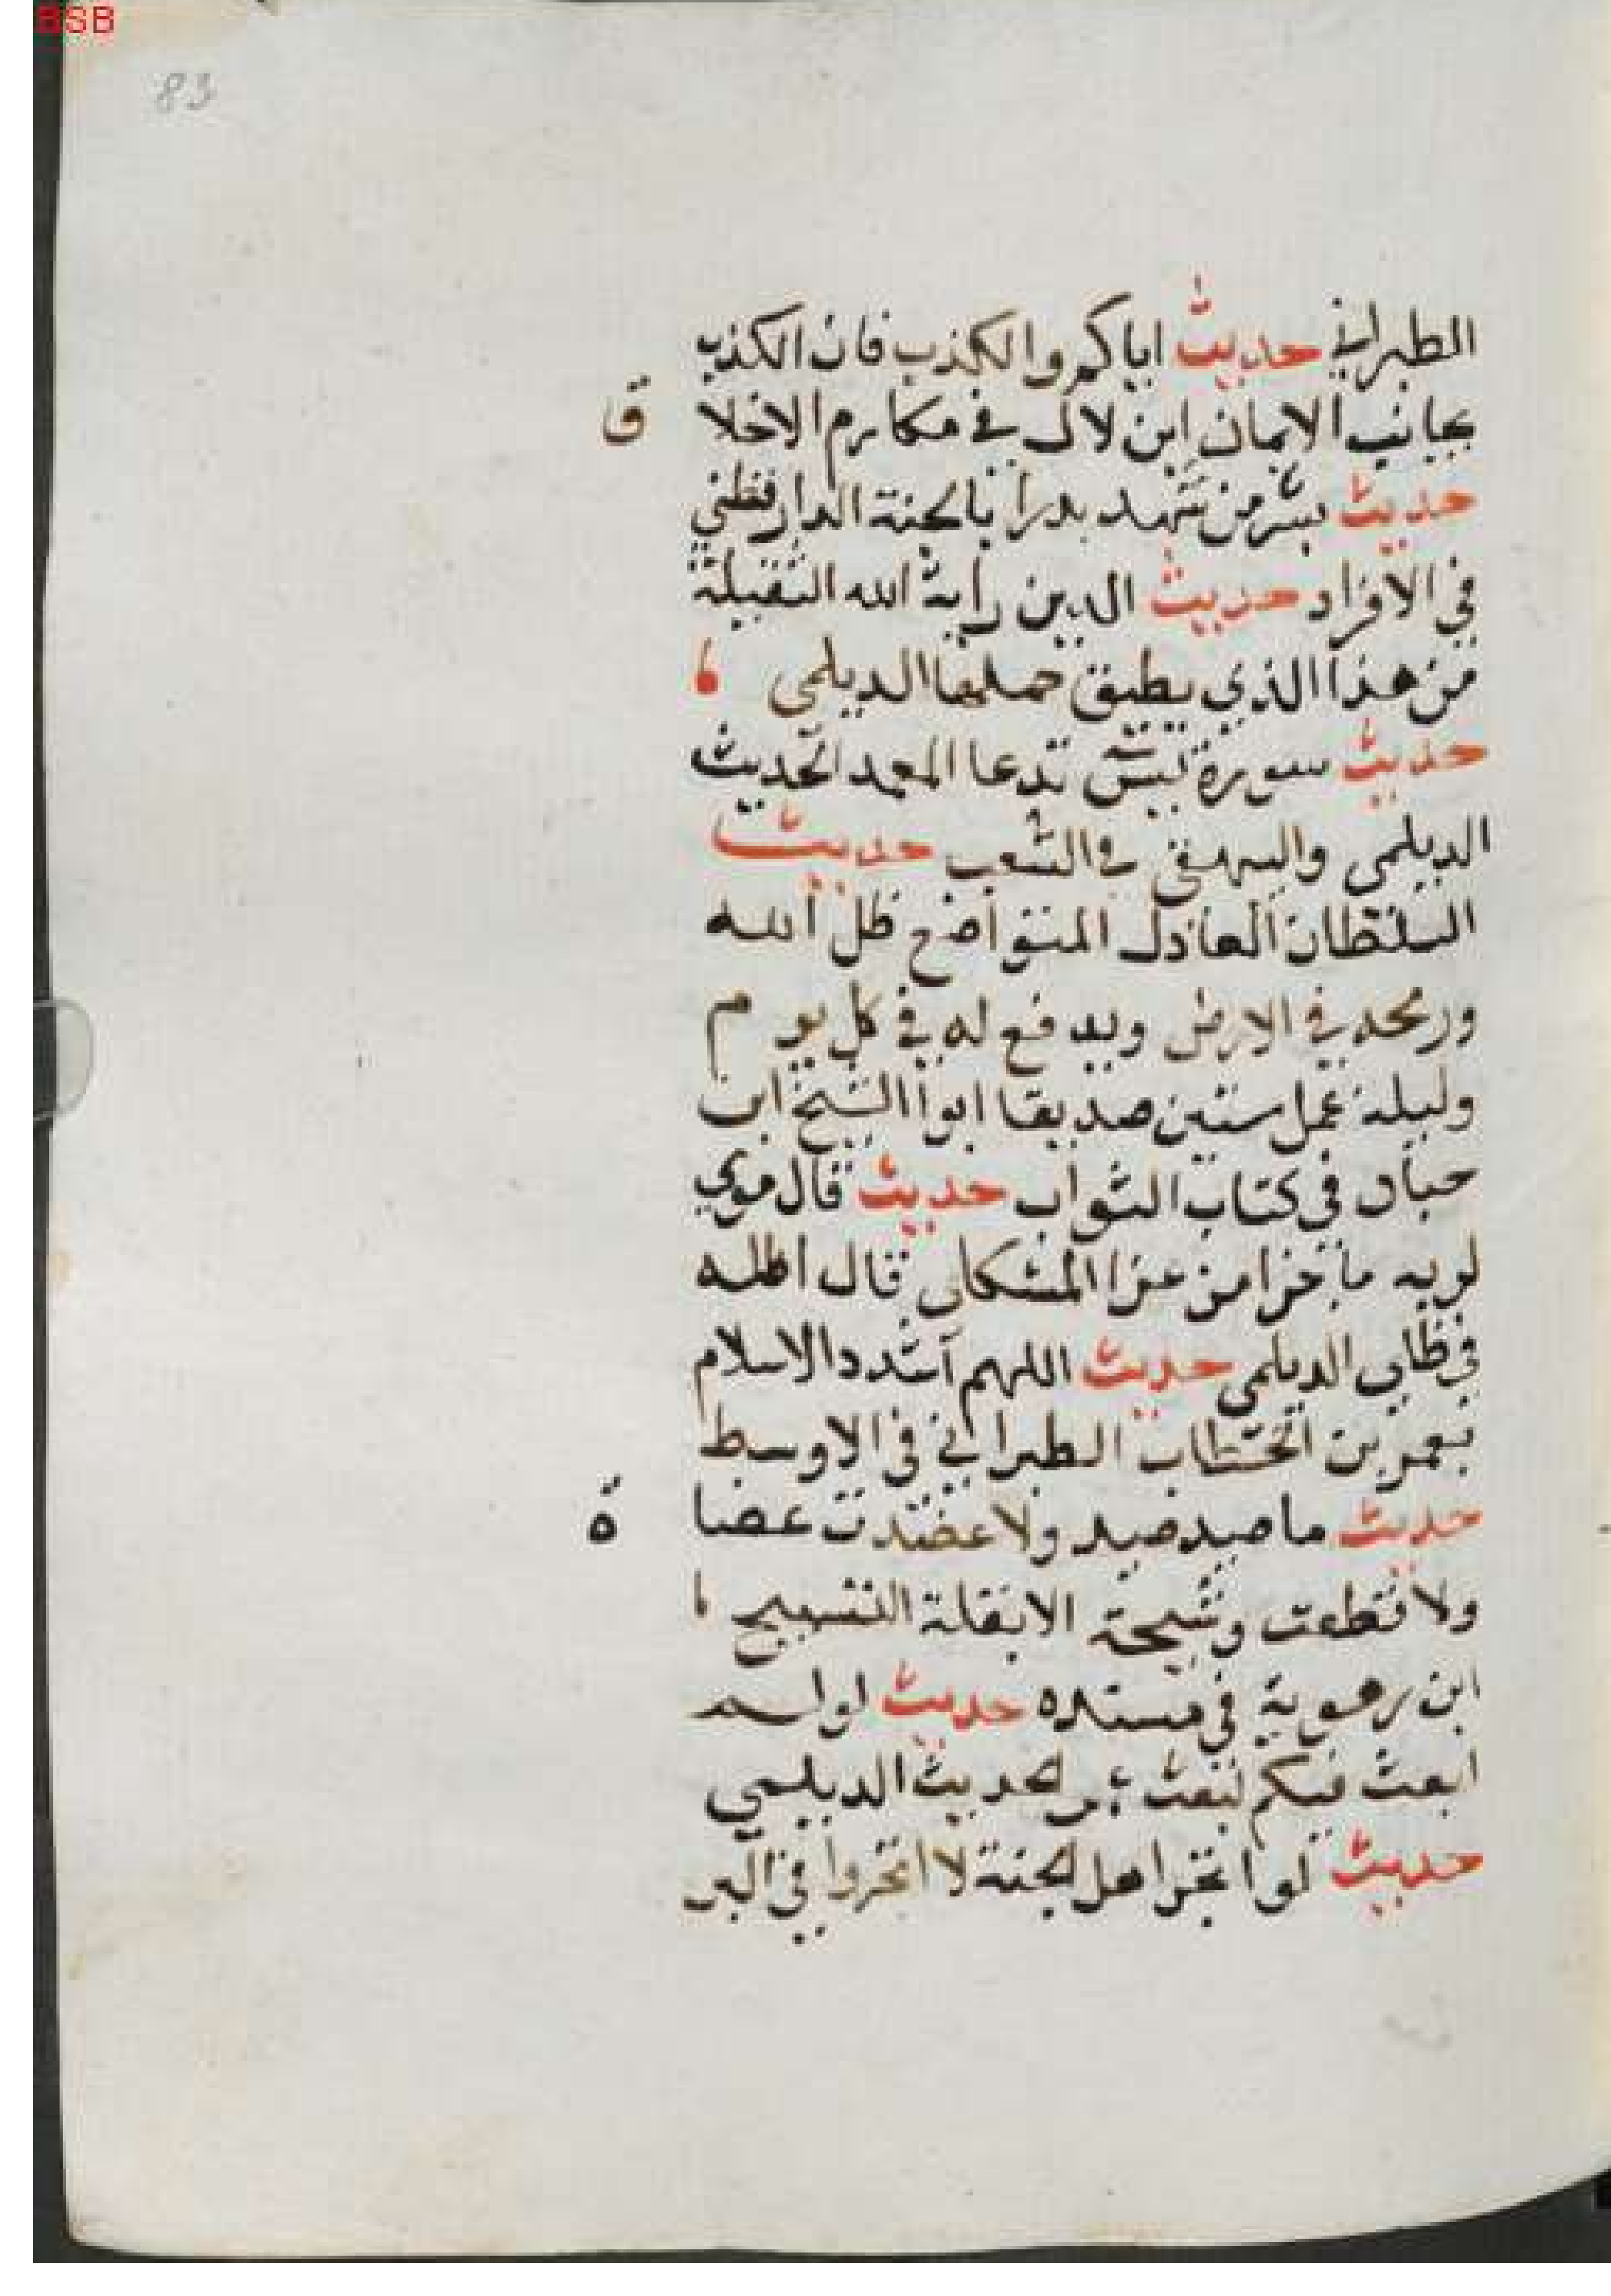 BSB
83
الطبراني حديث اياكم والكذب فان الكذب
بجانب الايمان ابن لال في مكارم الاخلا ق
حديث بشر من شهد بدرا بالجنة الدارقطني
في الافراد حديث الدين راية الله الثقيلة
من هذا الذي يطيق حملها الديلمي
حديث سورة تدعا المعمد الحديث
الديلمي والبيهقي في الشعب حديث
السلطان العادل المتواضع ظل الله
ورمحه في الارض ويدفع له في كل يوم
وليلة عمل ستين صديقا ابوا الشيخ ابن
حبان في كتاب الثواب حديث قال موسي
لربه ما جزا من عزا قال اظله
في ظلي الديلمي حديث اللهم اشدد الاسلام
بعمر بن الخطاب الطبراني في الاوسط
حديث ما صيد صيد ولا عضدت عضا ة
ولا قطعت وشيجة الا بقلة التسبيح
ابن رهوية في مسنده حديث لو لم
ابعث فيكم لبعث عمر الحديث الديلمي
حديث لو اتجر اهل الجنة لا اتجروا في البر